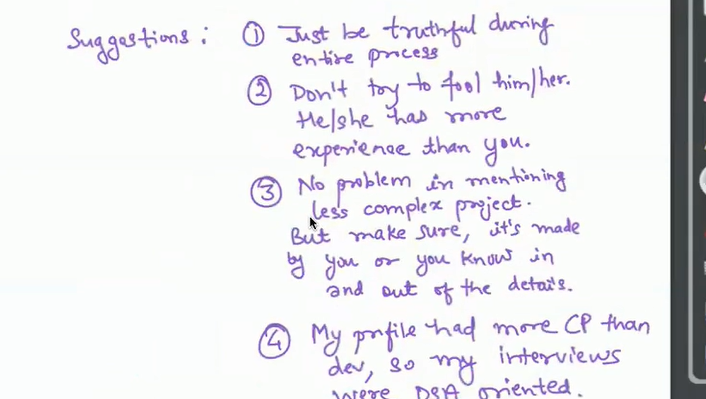 Suggestions : ① Just be truthful during
entire process
② Don't try to fool him/her.
He/she has more
experience than you.
③ No problem in mentioning
less complex project.
But make sure, it's made
by you or you know in
and out of the details.
④ My profile had more CP than
dev, so my interviews
were DSA oriented.